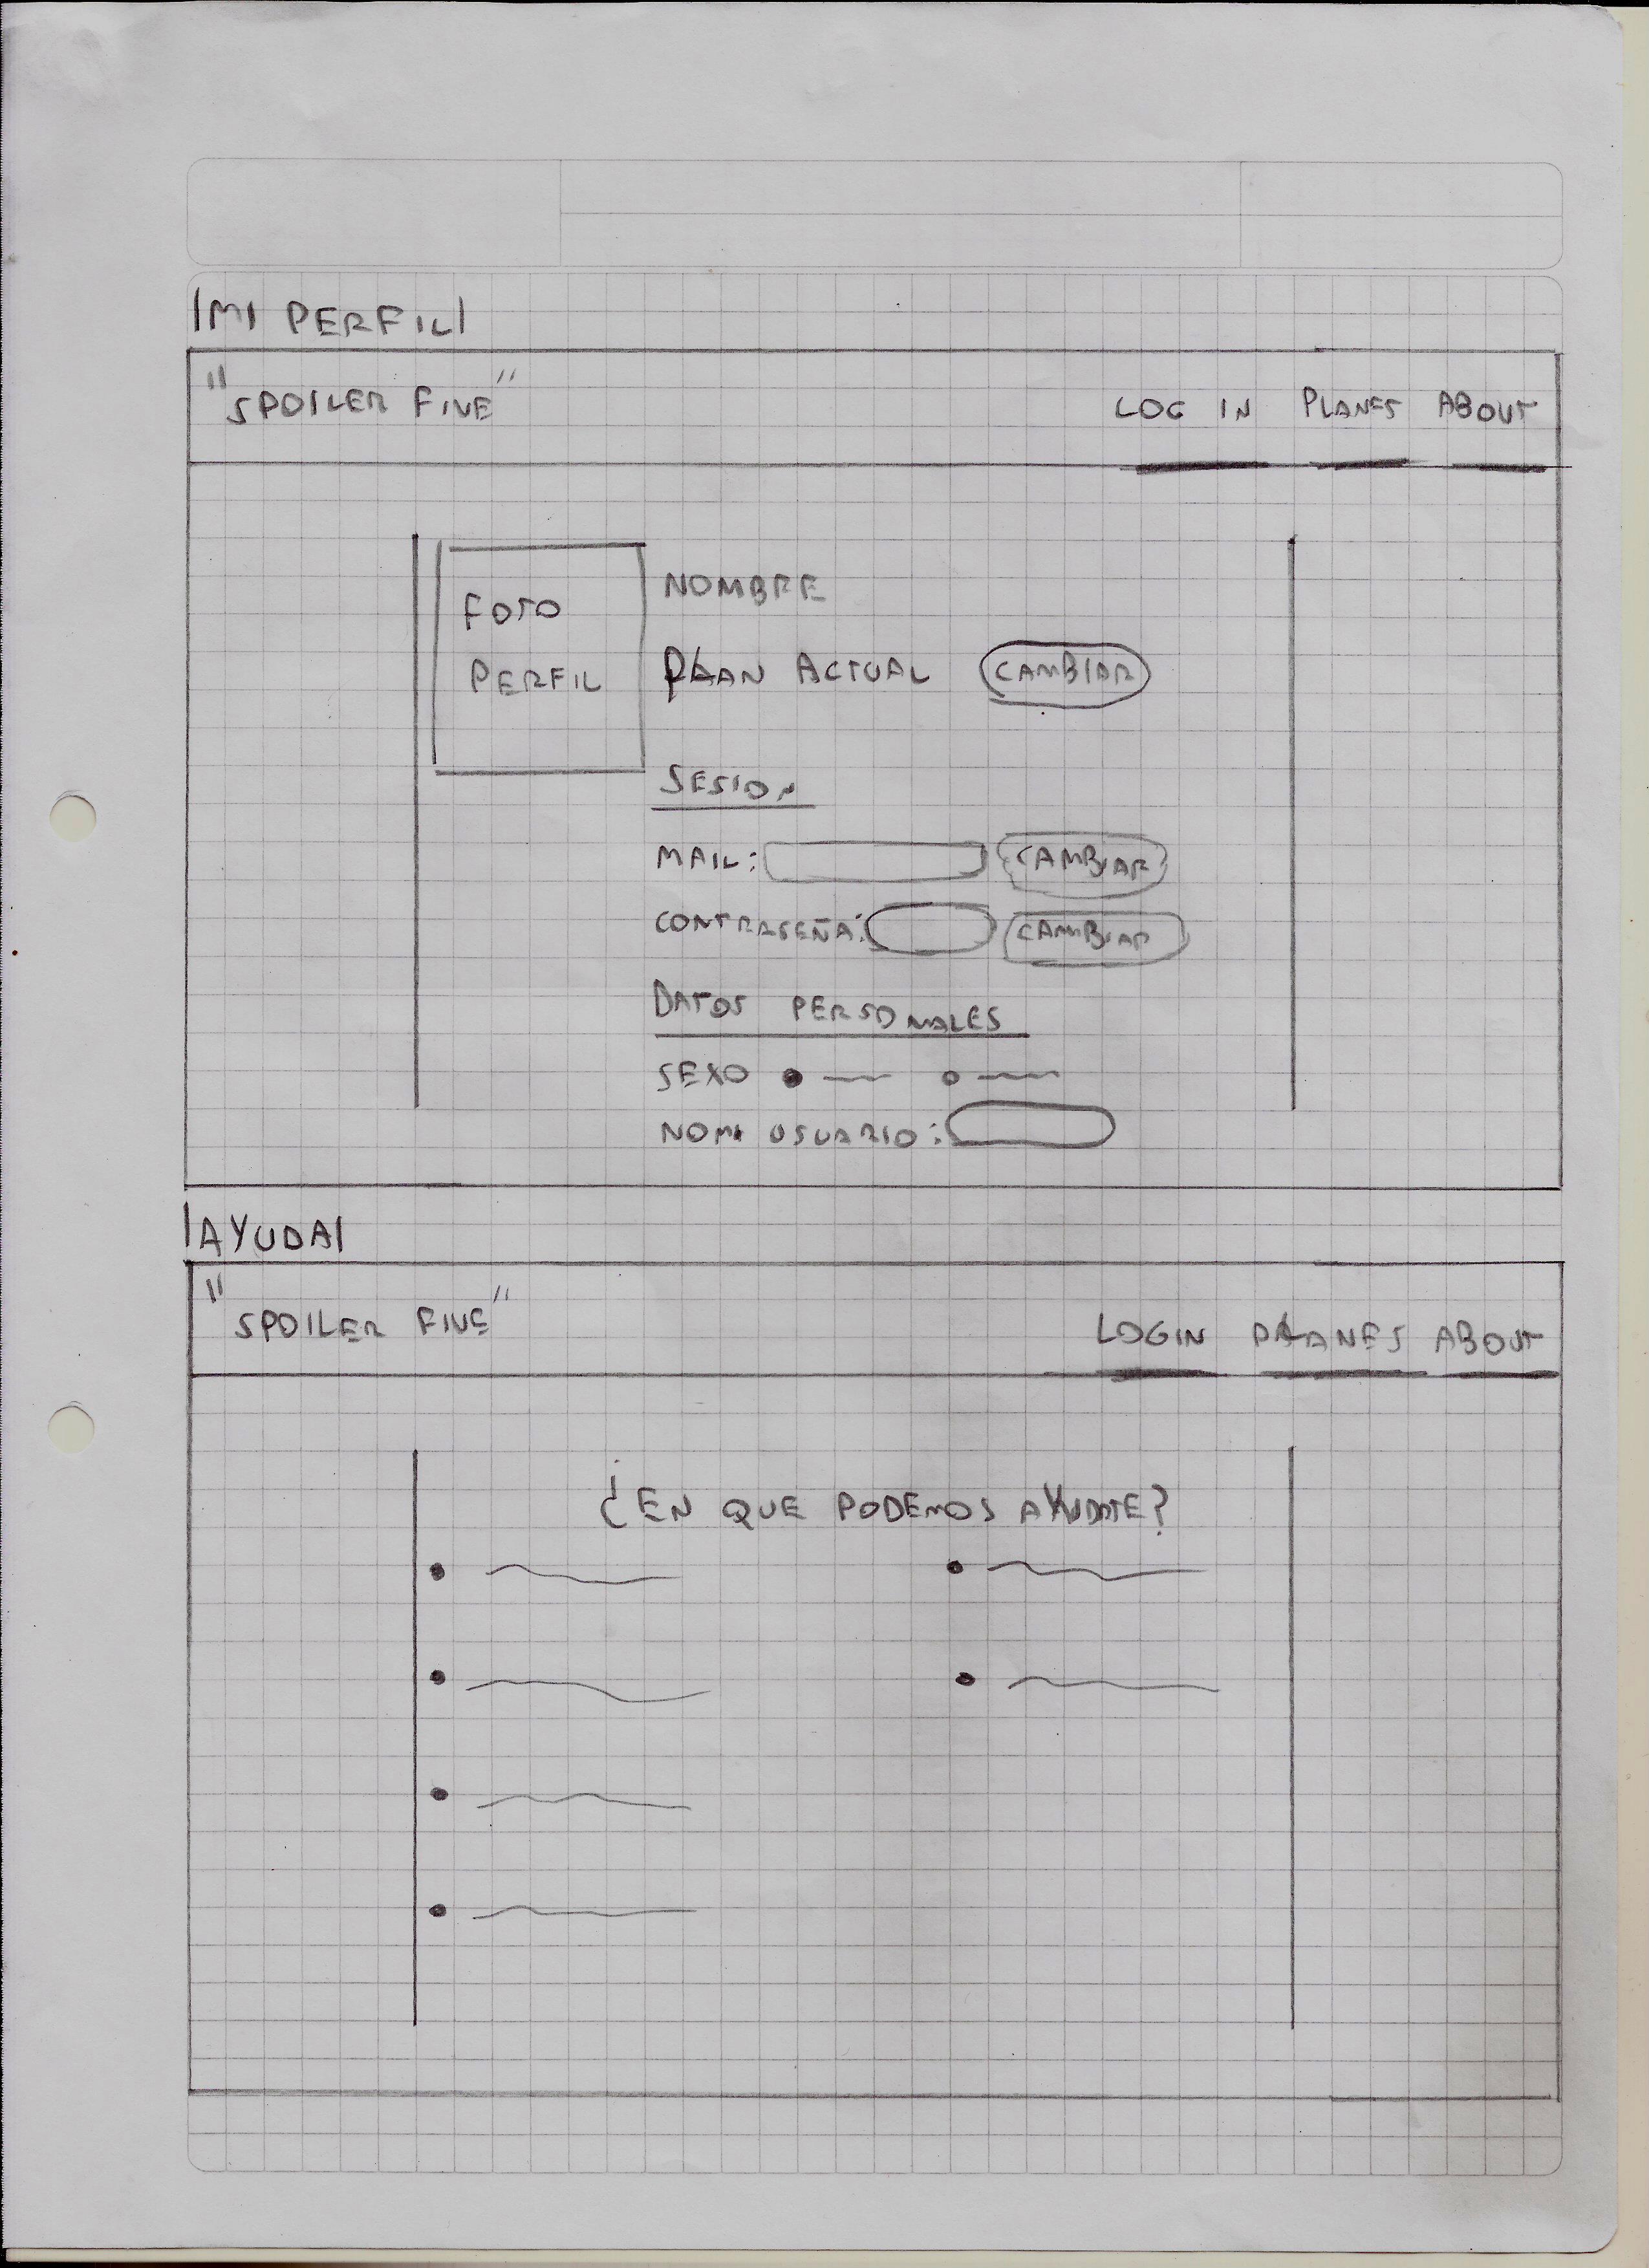 |MI PERFIL|
"SPOILER FIVE" LOG IN PLANES ABOUT
FOTO
PERFIL
NOMBRE
PLAN ACTUAL CAMBIAR
SESION
MAIL: CAMBIAR
CONTRASEÑA: CAMBIAR
DATOS PERSONALES
SEXO
NOM USUARIO:
|AYUDA|
"SPOILER FIVE" LOGIN PLANES ABOUT
¿EN QUE PODEMOS AYUDATE?